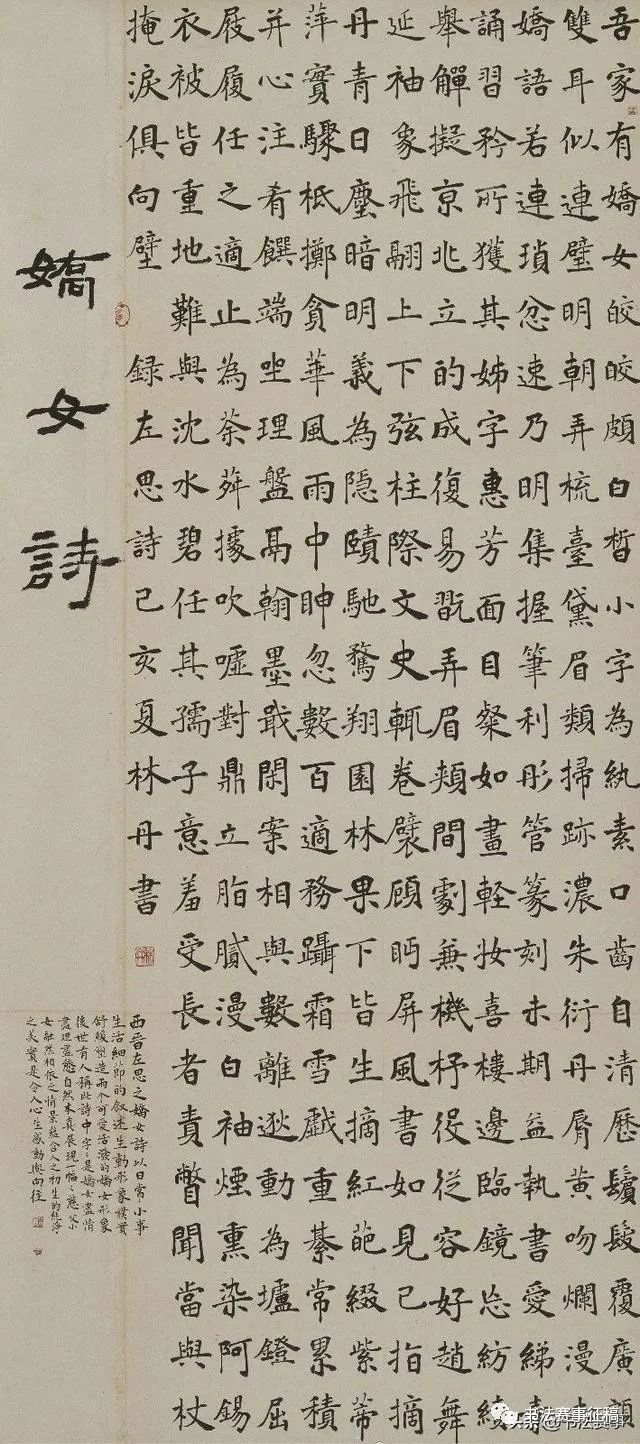 吾家有嬌女皎皎頗白皙小字為紈素口齒自清歷鬢髮覆廣額
雙耳似連璧明朝弄梳臺黛眉類掃跡濃朱衍丹脣黃吻爛漫赤
嬌語若連瑣忿速乃明集握筆利彤管篆刻未期益執書愛綈素
誦習矜所獲其姊字惠芳面目粲如畫軽妝喜樓邊臨鏡忘紡績
舉觶擬京兆立的成復易翫弄眉頰間劇兼機杼役從容好趙舞
延袖象飛翮上下弦柱際文史輒卷襞顧眄屏風書如見已指摘
丹青日塵暗明義為隱賾馳騖翔園林果下皆生摘紅葩綴紫蒂
萍實驟柢擲貪華風雨中眒忽數百適務躡霜雪戲重綦常累積
并心注肴饌端坐理盤鬲翰墨戢閑案相與數離逖動為壚鐙屈
屐履任之適止為荼荈據吹噓對鼎立脂膩漫白袖煙熏染阿錫
衣被皆重地難與沈水碧任其孺子意羞受長者責瞥聞當與杖
掩淚俱向壁 錄左思詩己亥夏林丹書
嬌女詩
西晉左思之嬌女詩以日常小事
生活細節的叙述生動形象樸實
舒緩塑造兩个可愛活潑的嬌女形象
後世有人稱此詩中字々是嬌女盡情
盡理盡態自然本真展現一幅々慈父小
女融然相依之情景蘊含人之初生的純淨
之美實是令人心生感動與向往
书法赛事征稿